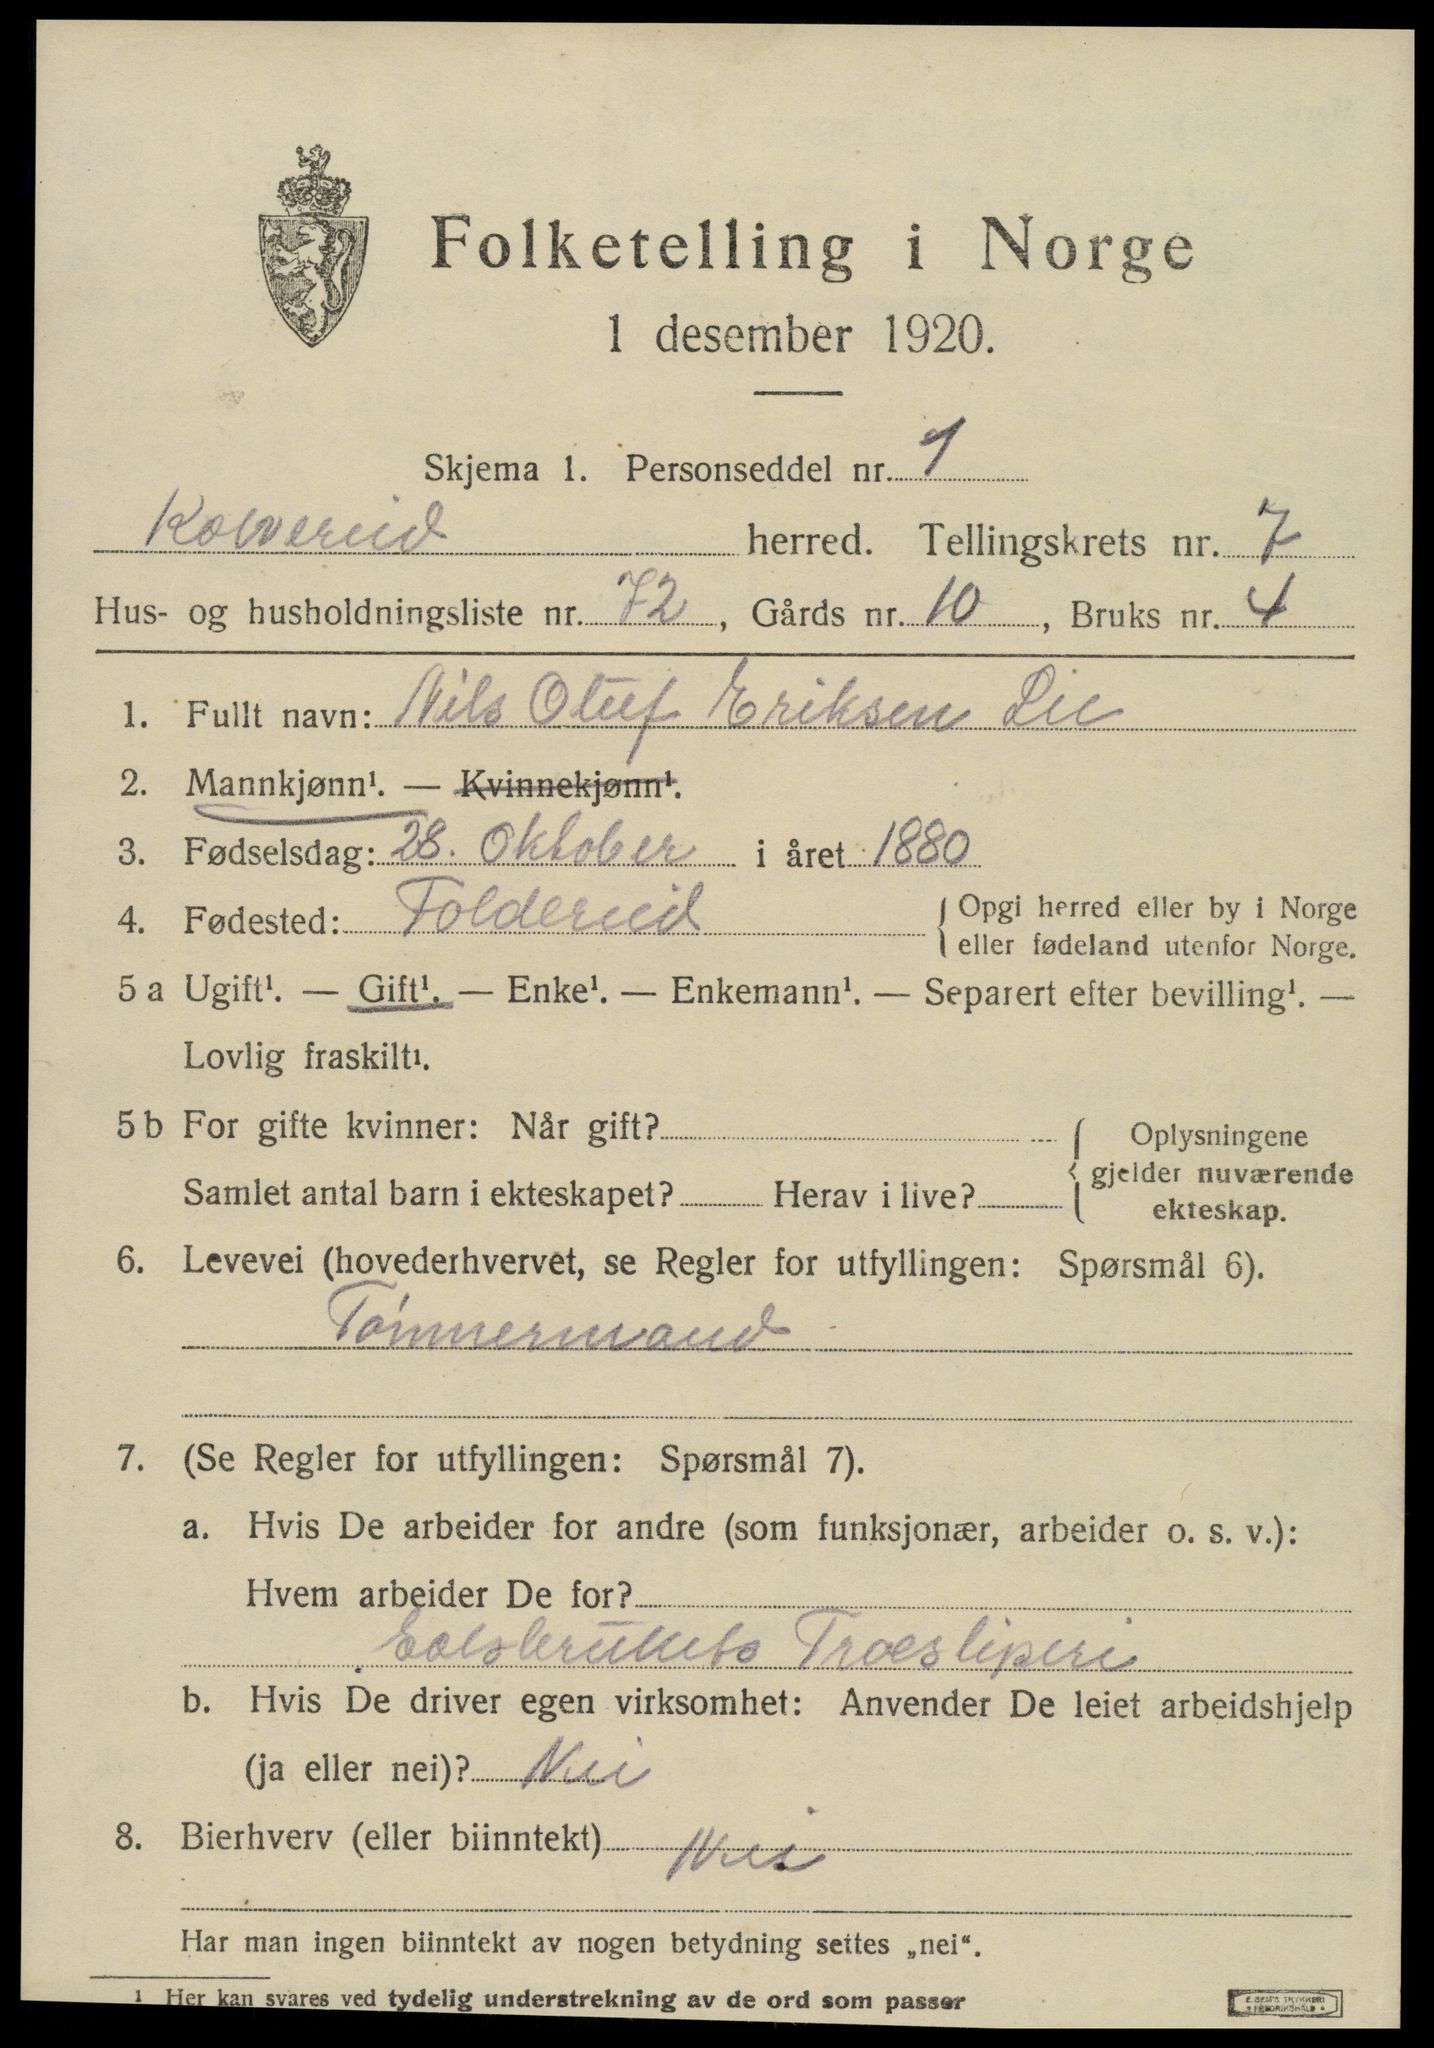 Folketelling i Norge
1 desember 1920.
Skjema 1. Personseddel nr. 1
Kolvereid herred. Tellingskrets nr. 7
Hus- og husholdningsliste nr. 72, Gårds nr. 10, Bruks nr. 4
1. Fullt navn: Nils Oluf Eriksen Lie
2. Mannkjønn¹. — Kvinnekjønn¹.
3. Fødselsdag: 28. Oktober i året 1880
4. Fødested: Foldereid { Opgi herred eller by i Norge
eller fødeland utenfor Norge.
5 a Ugift¹. — Gift¹. — Enke¹. — Enkemann¹. — Separert efter bevilling¹. —
Lovlig fraskilt¹.
5 b For gifte kvinner: Når gift? { Oplysningene
gjelder nuværende
Samlet antal barn i ekteskapet? Herav i live?
ekteskap.
6. Levevei (hovederhvervet, se Regler for utfyllingen: Spørsmål 6).
Tømmermand
7. (Se Regler for utfyllingen: Spørsmål 7).
a. Hvis De arbeider for andre (som funksjonær, arbeider o. s. v.):
Hvem arbeider De for?
Træsliperi
b. Hvis De driver egen virksomhet: Anvender De leiet arbeidshjelp
(ja eller nei)? Nei
8. Bierhverv (eller biinntekt) Nei
Har man ingen biinntekt av nogen betydning settes „nei“.
1 Her kan svares ved tydelig understrekning av de ord som passer